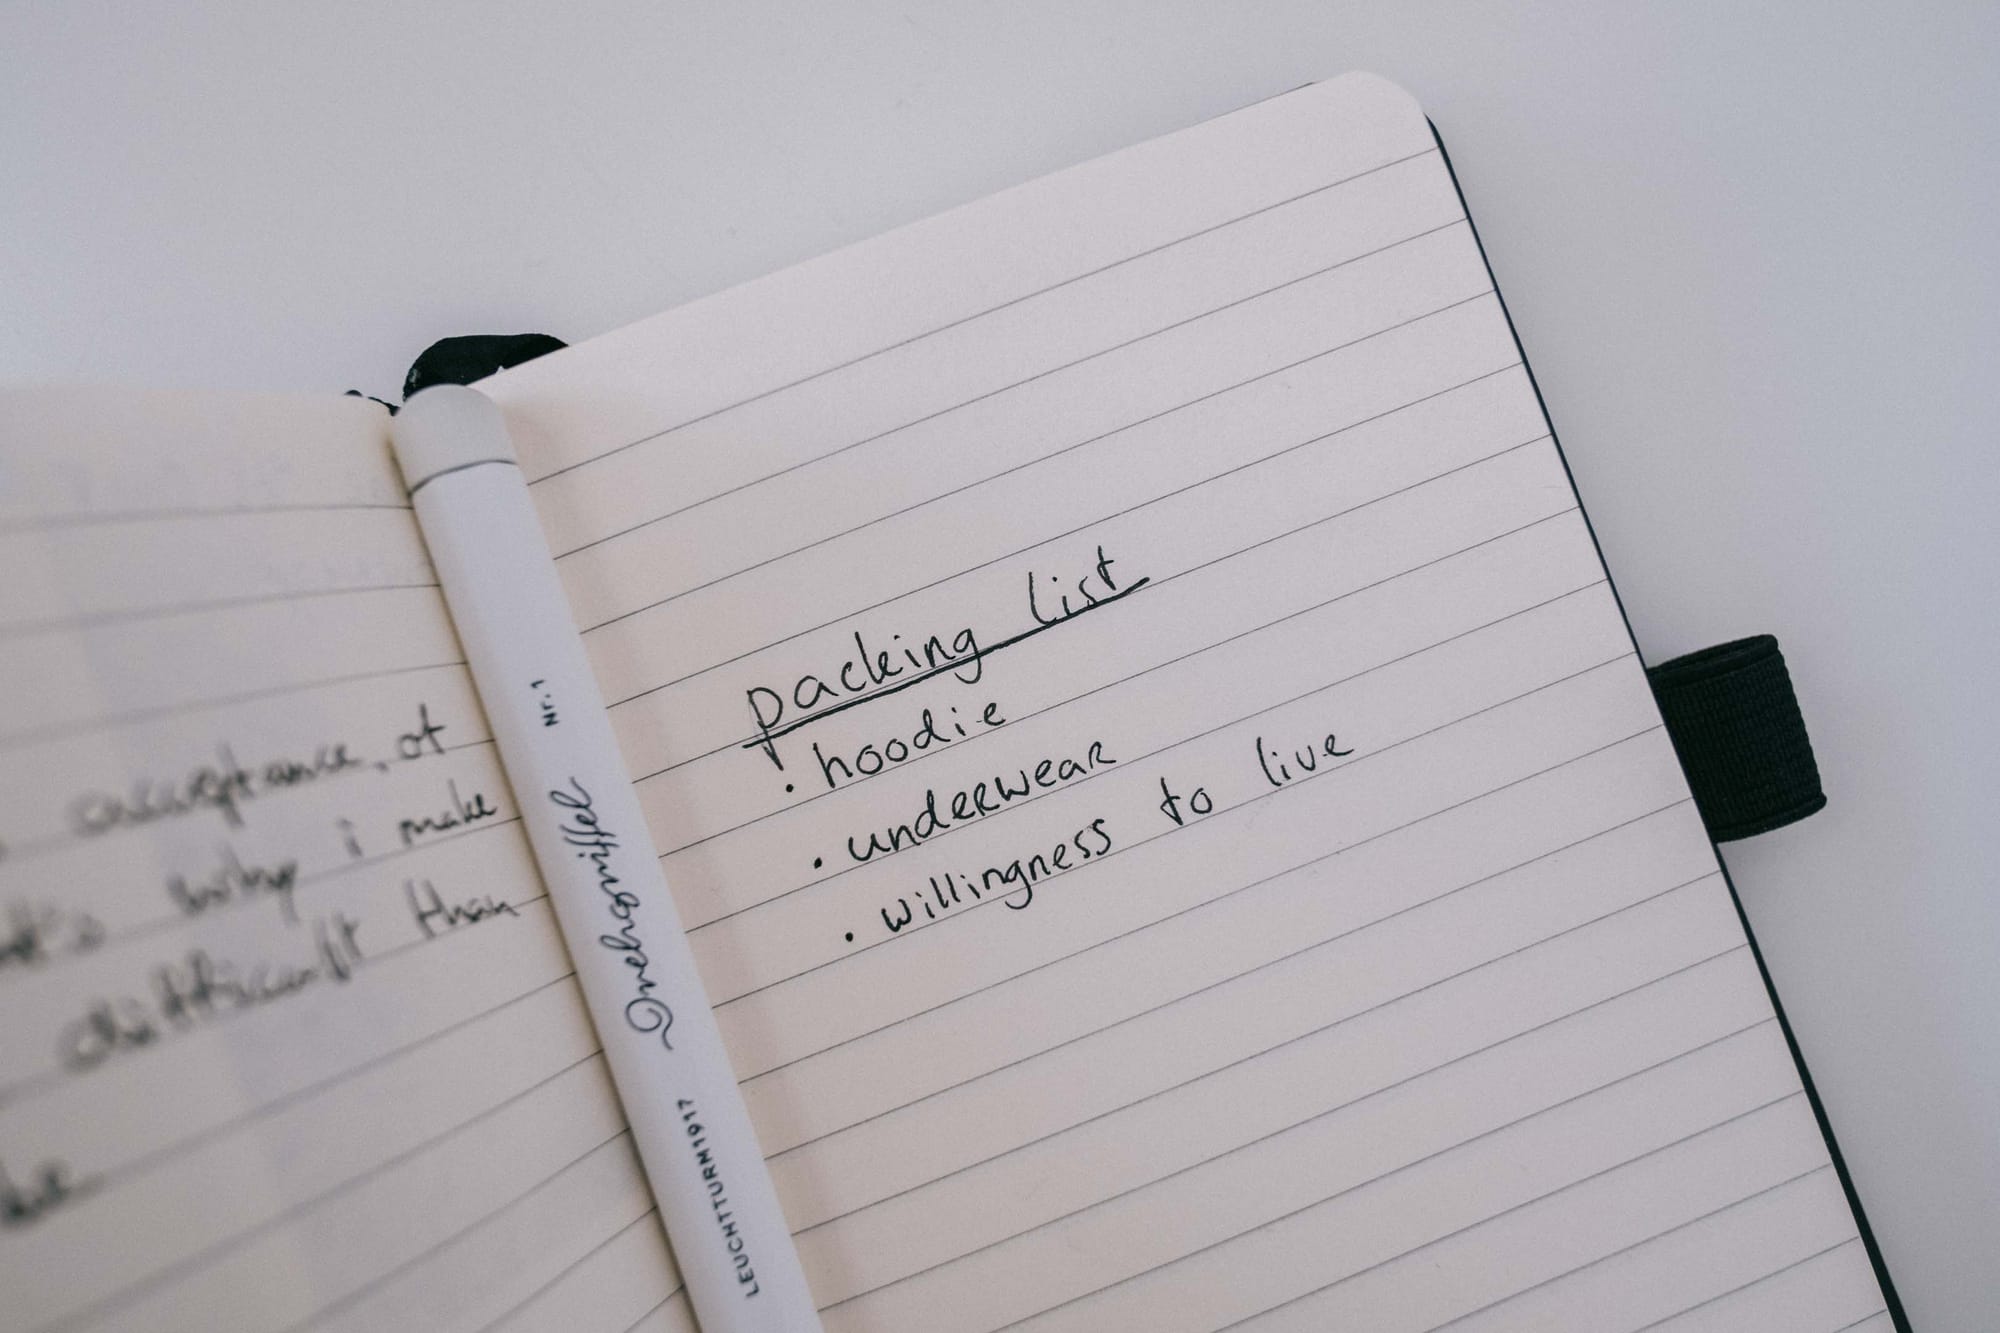 acceptance, of
why i make
difficult than
Nr.1
Drehgriffel
LEUCHTTURM1917
packing list
· hoodie
· underwear
· willingness to live